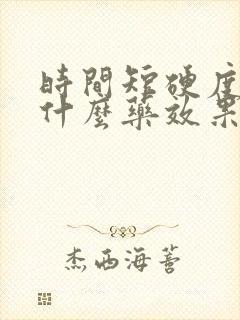 時間短硬度
什麼藥效果
杰西海蒼